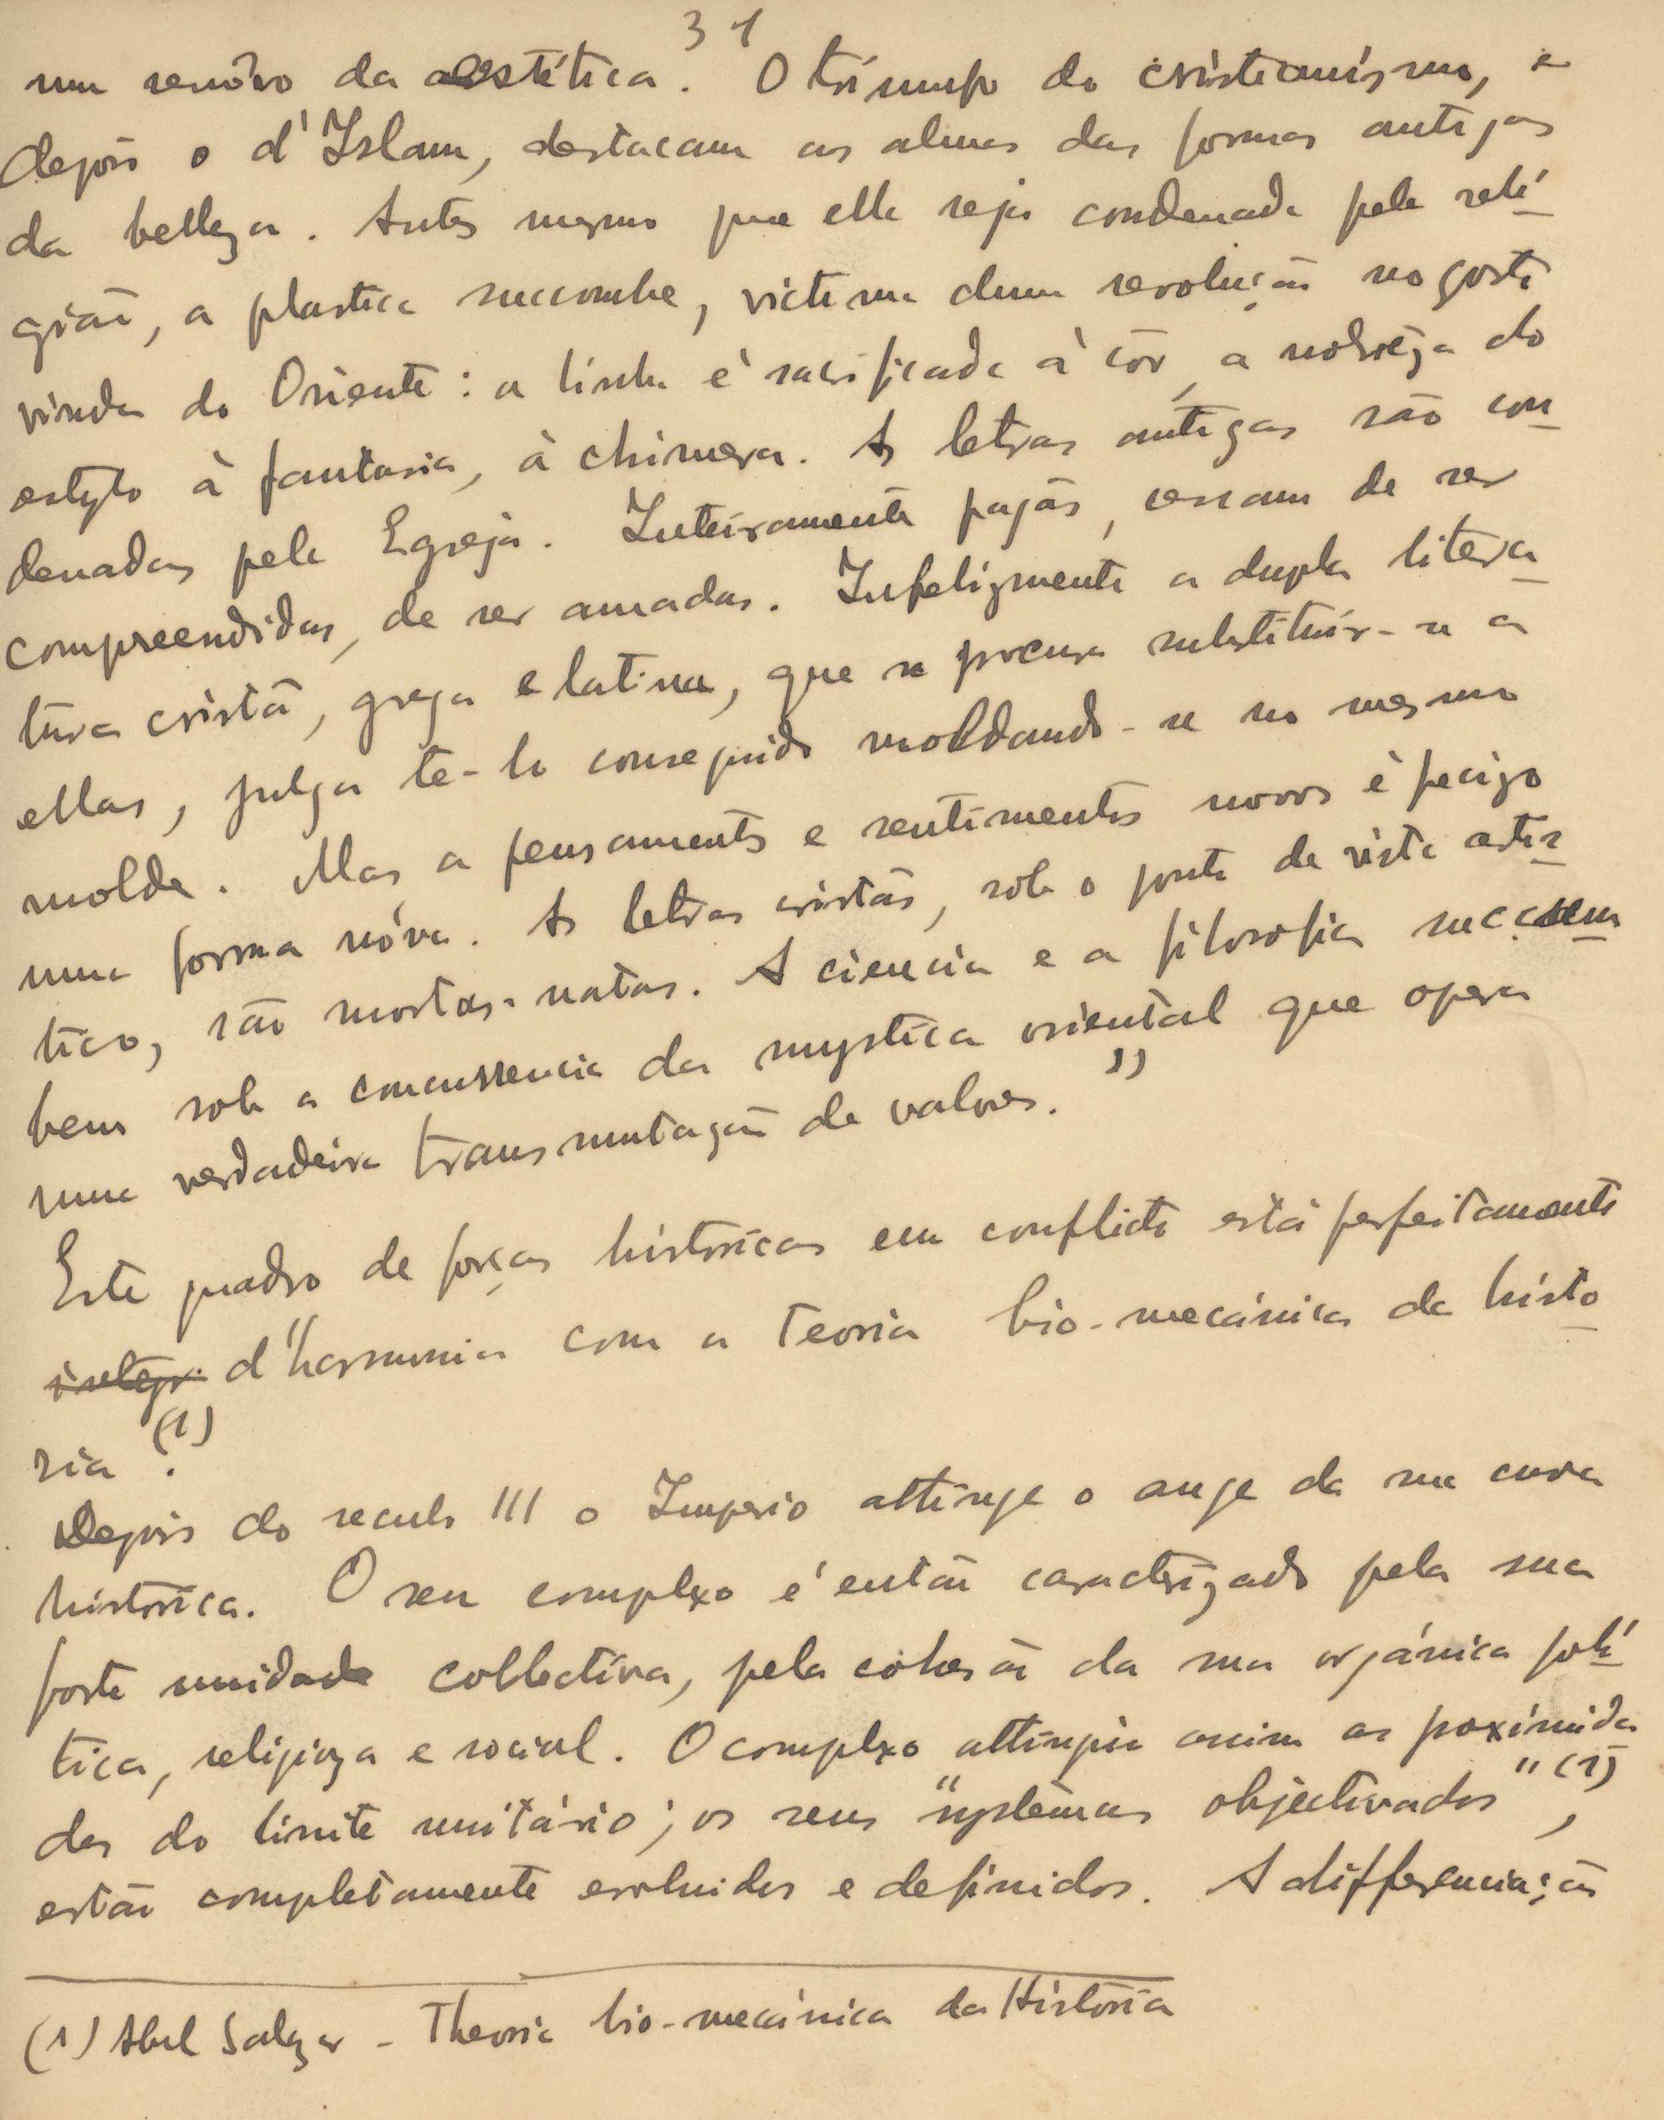 31
um renôvo da aestética. O triumfo do cristianismo, e
depois o d'Islam, destacam as almas das formas antigas
da belleza. Antes mesmo que ella seja condenada pela reli-
gião, a plastica succombe, victima duma revolução no gosto
vinda do Oriente: a linha é sacrificada à côr, a nobreza do
estylo à fantasia, à chimera. As letras antigas são con-
denadas pela Egreja. Inteiramente pagãs, cessam de ser
compreendidas, de ser amadas. Infelizmente a dupla litera-
tura cristã, grega e latina, que se procura substituir-se a
ellas, julga te-lo conseguido moldando-se no mesmo
molde. Mas, a pensamentos e sentimentos novos é preciso
uma forma nóva. As letras cristãs, sob o ponto de vista artis-
tico, são mortas-natas. A ciencia e a filosofia succum-
bem sob a concurrencia da mystica oriental que opera
uma verdadeira transmutação de valores."
Este quadro de forças historicas em conflicto está perfeitamente
integr. d'harmonia com a teoria bio-mecánica da histo-
ria (1).
Depois do seculo III o Imperio attinge o auge da sua curva
historica. O seu complexo é então caractrizado pela sua
forte unidade collectiva, pela cohesão da sua orgánica poli-
tica, religioza e social. O complexo attingiu assim as proximida-
des do limite unitário; os seus "systèmas objectivados" (1),
estão completamente evoluidos e definidos. A differenciação
(1) Abel Salazar - Theoria bio-mecánica da História